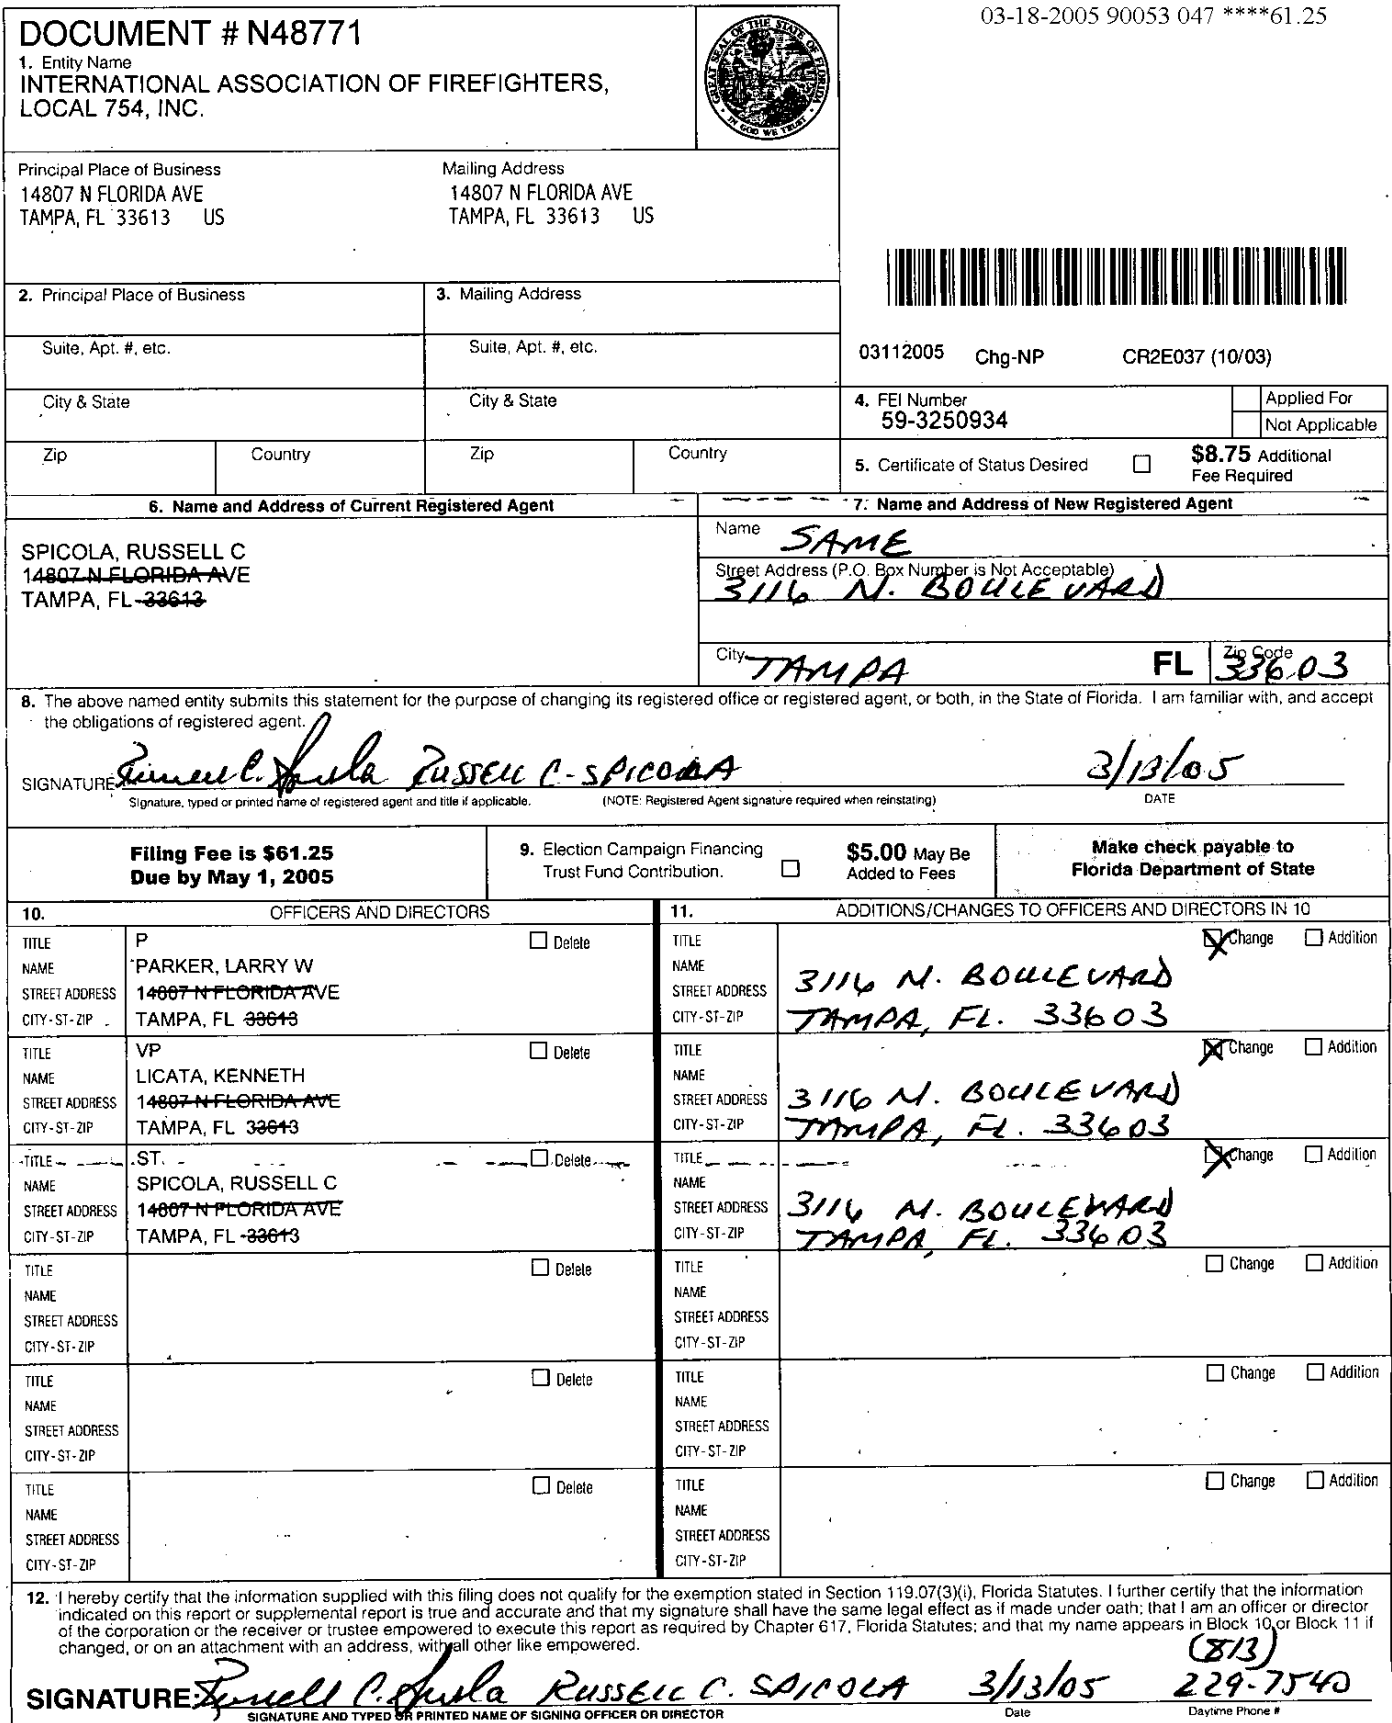 03-18-2005 90053 047 ****61.25
DOCUMENT # N48771
1. Entity Name
INTERNATIONAL ASSOCIATION OF FIREFIGHTERS,
LOCAL 754, INC.
GREAT SEAL OF THE STATE OF FLORIDA
IN GOD WE TRUST
Principal Place of Business
14807 N FLORIDA AVE
TAMPA, FL 33613 US
Mailing Address
14807 N FLORIDA AVE
TAMPA, FL 33613 US
2. Principal Place of Business
3. Mailing Address
Suite, Apt. #, etc.
Suite, Apt. #, etc.
City & State
City & State
Zip Country
Zip Country
03112005 Chg-NP CR2E037 (10/03)
4. FEI Number
59-3250934
Applied For
Not Applicable
5. Certificate of Status Desired
$8.75 Additional
Fee Required
6. Name and Address of Current Registered Agent
SPICOLA, RUSSELL C
14807 N FLORIDA AVE
TAMPA, FL 33613
7. Name and Address of New Registered Agent
Name SAME
Street Address (P.O. Box Number is Not Acceptable)
3116 N. BOULEVARD
City TAMPA FL Zip Code 33603
8. The above named entity submits this statement for the purpose of changing its registered office or registered agent, or both, in the State of Florida. I am familiar with, and accept
the obligations of registered agent.
SIGNATURE Russell C. Spicola RUSSELL C. SPICOLA 3/13/05
Signature, typed or printed name of registered agent and title if applicable. (NOTE: Registered Agent signature required when reinstating) DATE
Filing Fee is $61.25
Due by May 1, 2005
9. Election Campaign Financing
Trust Fund Contribution.
$5.00 May Be
Added to Fees
Make check payable to
Florida Department of State
10. OFFICERS AND DIRECTORS
11. ADDITIONS/CHANGES TO OFFICERS AND DIRECTORS IN 10
TITLE P Delete
NAME PARKER, LARRY W
STREET ADDRESS 14807 N FLORIDA AVE
CITY-ST-ZIP TAMPA, FL 33613
TITLE Change Addition
NAME
STREET ADDRESS 3116 N. BOULEVARD
CITY-ST-ZIP TAMPA, FL. 33603
TITLE VP Delete
NAME LICATA, KENNETH
STREET ADDRESS 14807 N FLORIDA AVE
CITY-ST-ZIP TAMPA, FL 33613
TITLE Change Addition
NAME
STREET ADDRESS 3116 N. BOULEVARD
CITY-ST-ZIP TAMPA, FL. 33603
TITLE ST Delete
NAME SPICOLA, RUSSELL C
STREET ADDRESS 14807 N FLORIDA AVE
CITY-ST-ZIP TAMPA, FL 33613
TITLE Change Addition
NAME
STREET ADDRESS 3116 N. BOULEVARD
CITY-ST-ZIP TAMPA, FL. 33603
TITLE Delete
NAME
STREET ADDRESS
CITY-ST-ZIP
TITLE Change Addition
NAME
STREET ADDRESS
CITY-ST-ZIP
TITLE Delete
NAME
STREET ADDRESS
CITY-ST-ZIP
TITLE Change Addition
NAME
STREET ADDRESS
CITY-ST-ZIP
TITLE Delete
NAME
STREET ADDRESS
CITY-ST-ZIP
TITLE Change Addition
NAME
STREET ADDRESS
CITY-ST-ZIP
12. I hereby certify that the information supplied with this filing does not qualify for the exemption stated in Section 119.07(3)(i), Florida Statutes. I further certify that the information
indicated on this report or supplemental report is true and accurate and that my signature shall have the same legal effect as if made under oath; that I am an officer or director
of the corporation or the receiver or trustee empowered to execute this report as required by Chapter 617, Florida Statutes; and that my name appears in Block 10 or Block 11 if
changed, or on an attachment with an address, with all other like empowered.
(813)
SIGNATURE: Russell C. Spicola RUSSELL C. SPICOLA 3/13/05 229-7540
SIGNATURE AND TYPED OR PRINTED NAME OF SIGNING OFFICER OR DIRECTOR Date Daytime Phone #